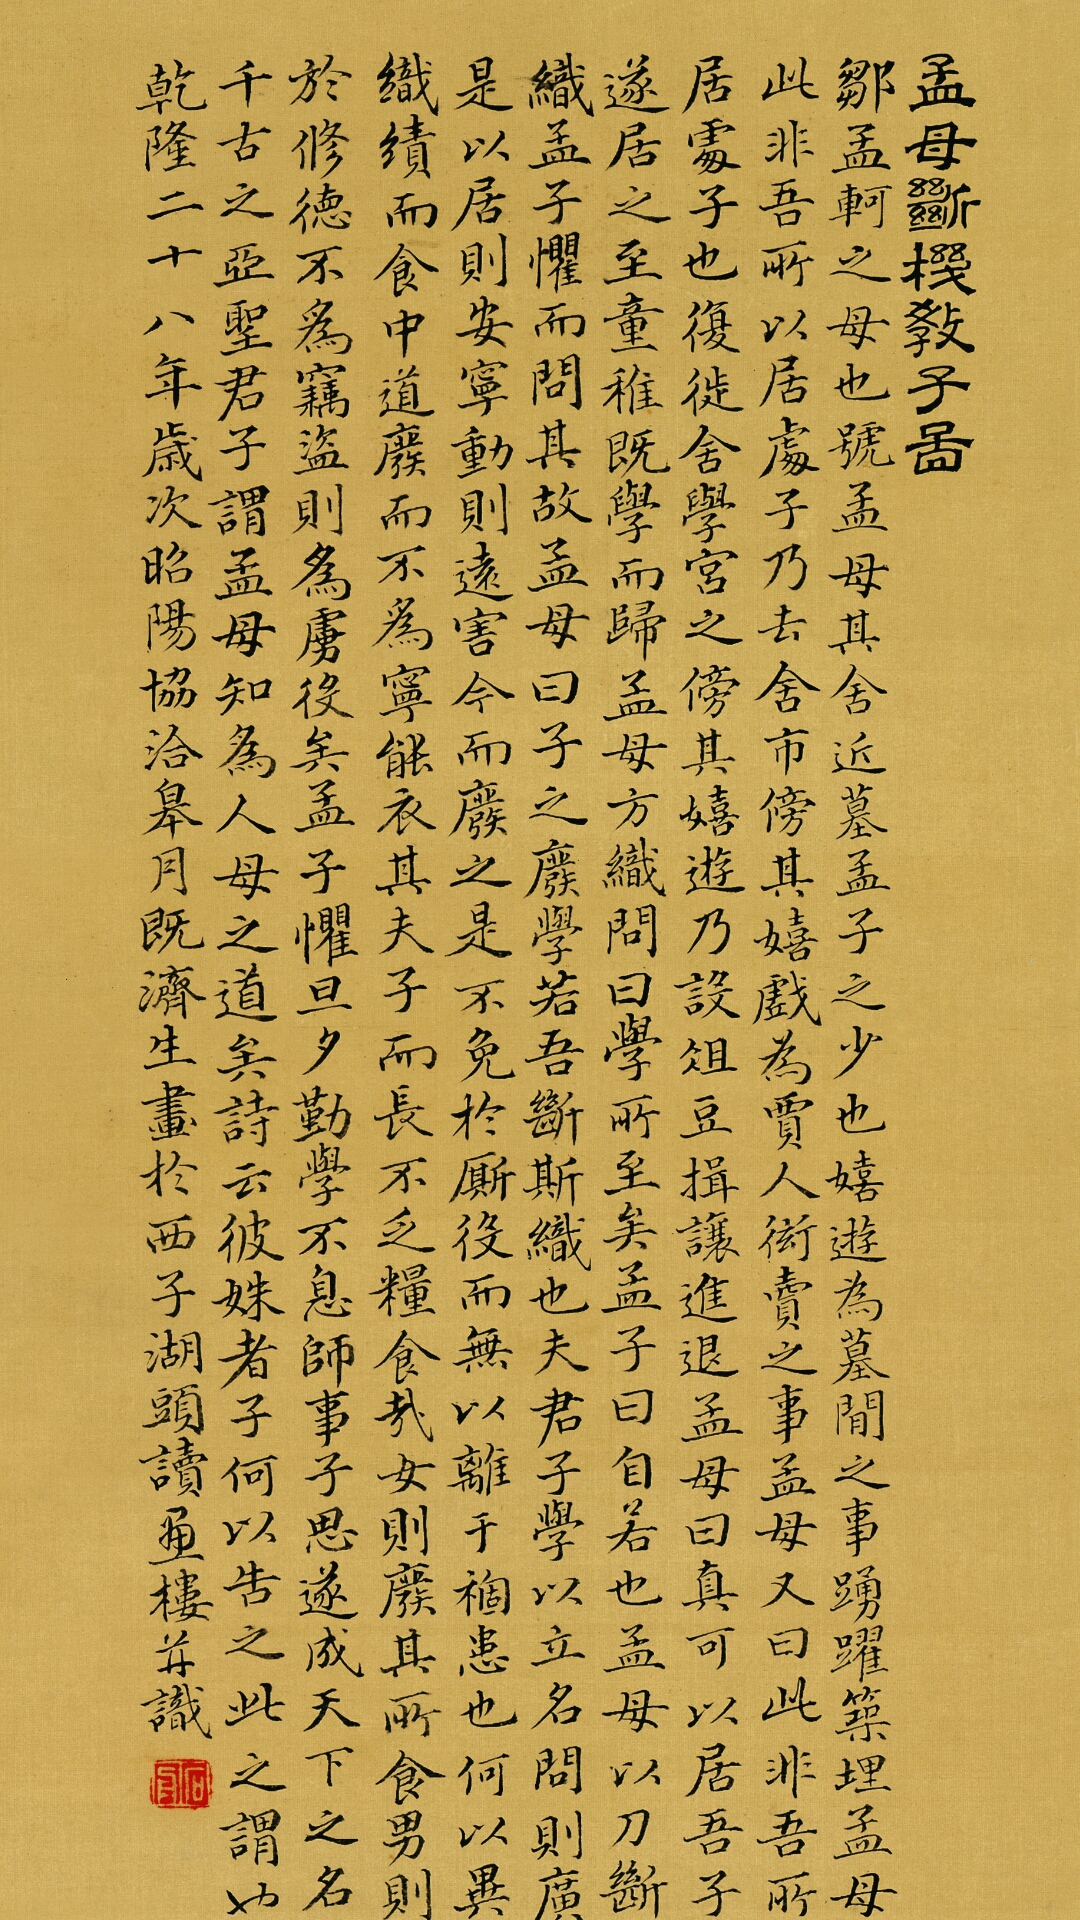 孟母斷機教子啚
鄒孟軻之母也號孟母其舍近墓孟子之少也嬉遊為墓間之事踴躍築埋孟母
此非吾所以居處子乃去舍市傍其嬉戲為賈人衒賣之事孟母又曰此非吾所
居處子也復徙舍學宮之傍其嬉遊乃設俎豆揖讓進退孟母曰真可以居吾子
遂居之至童稚既學而歸孟母方織問曰學所至矣孟子曰自若也孟母以刀斷
織孟子懼而問其故孟母曰子之廢學若吾斷斯織也夫君子學以立名問則廣
是以居則安寧動則遠害今而廢之是不免於厮役而無以離于禍患也何以異
織績而食中道廢而不為寧能衣其夫子而長不乏糧食哉女則廢其所食男則
於修德不為竊盜則為虜役矣孟子懼旦夕勤學不息師事子思遂成天下之名
千古之亞聖君子謂孟母知為人母之道矣詩云彼姝者子何以告之此之謂也
乾隆二十八年歲次昭陽協洽皋月既濟生畫於西子湖頭讀畫樓并識